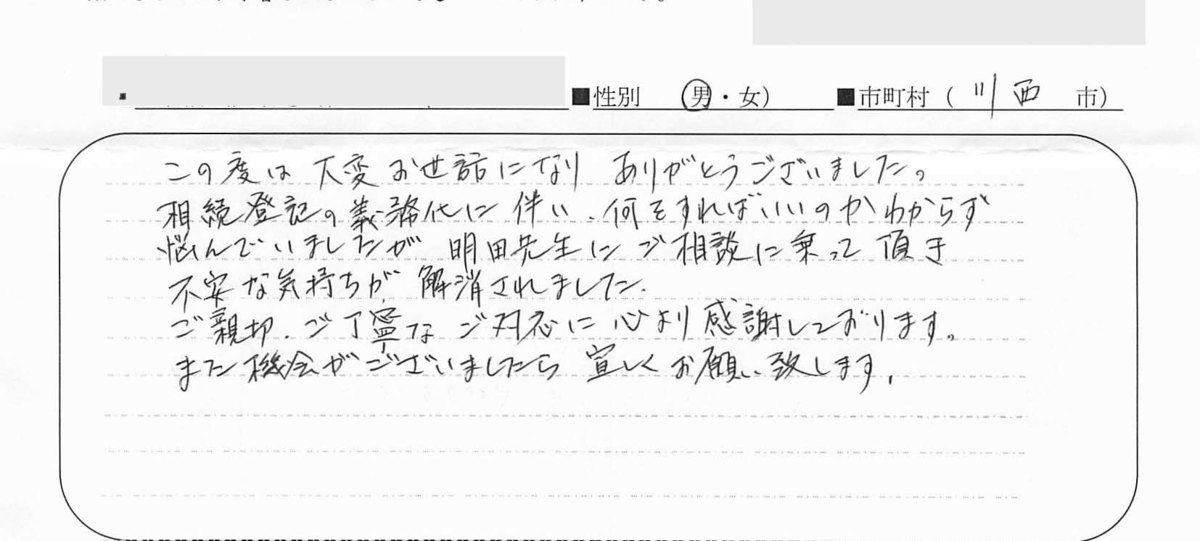 ■性別 (男・女) ■市町村(川西 市)
この度は大変お世話になり ありがとうございました。
相続登記の義務化に伴い、何をすればいいのかわからず
悩んでいましたが 明田先生にご相談に乗って頂き
不安な気持ちが解消されました。
ご親切、ご丁寧なご対応に心より感謝しております。
また機会がございましたら宜しくお願い致します。